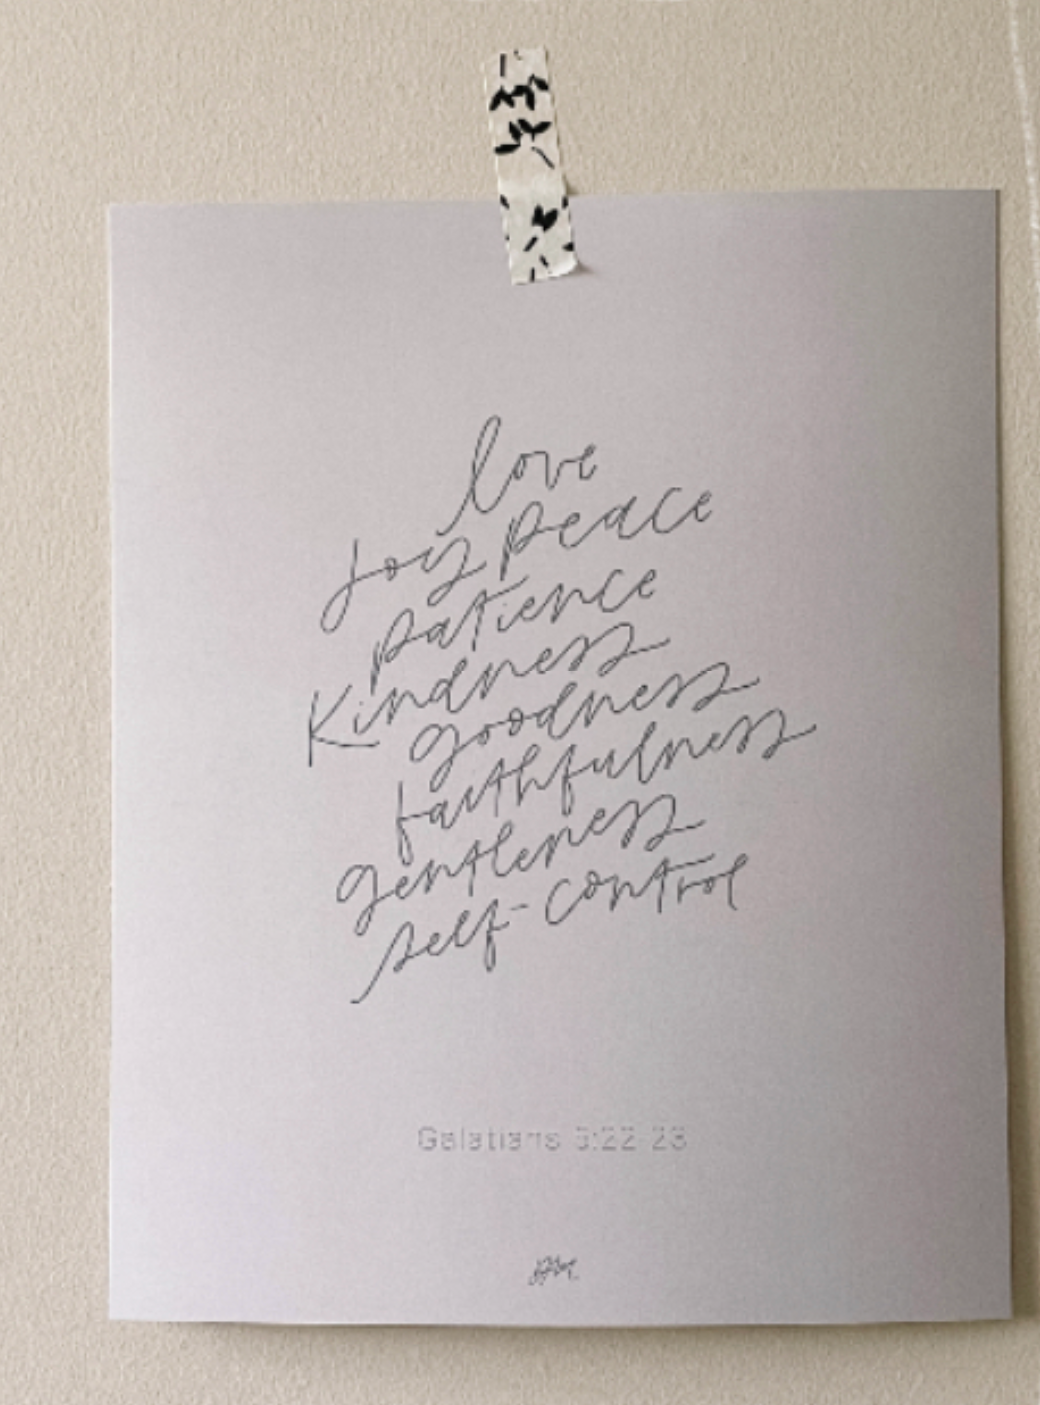 love
joy peace
patience
Kindness
goodness
faithfulness
gentleness
self-control
Galatians 5:22-23